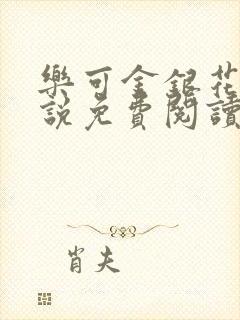 樂可金銀花
說免費閱讀
肖夫